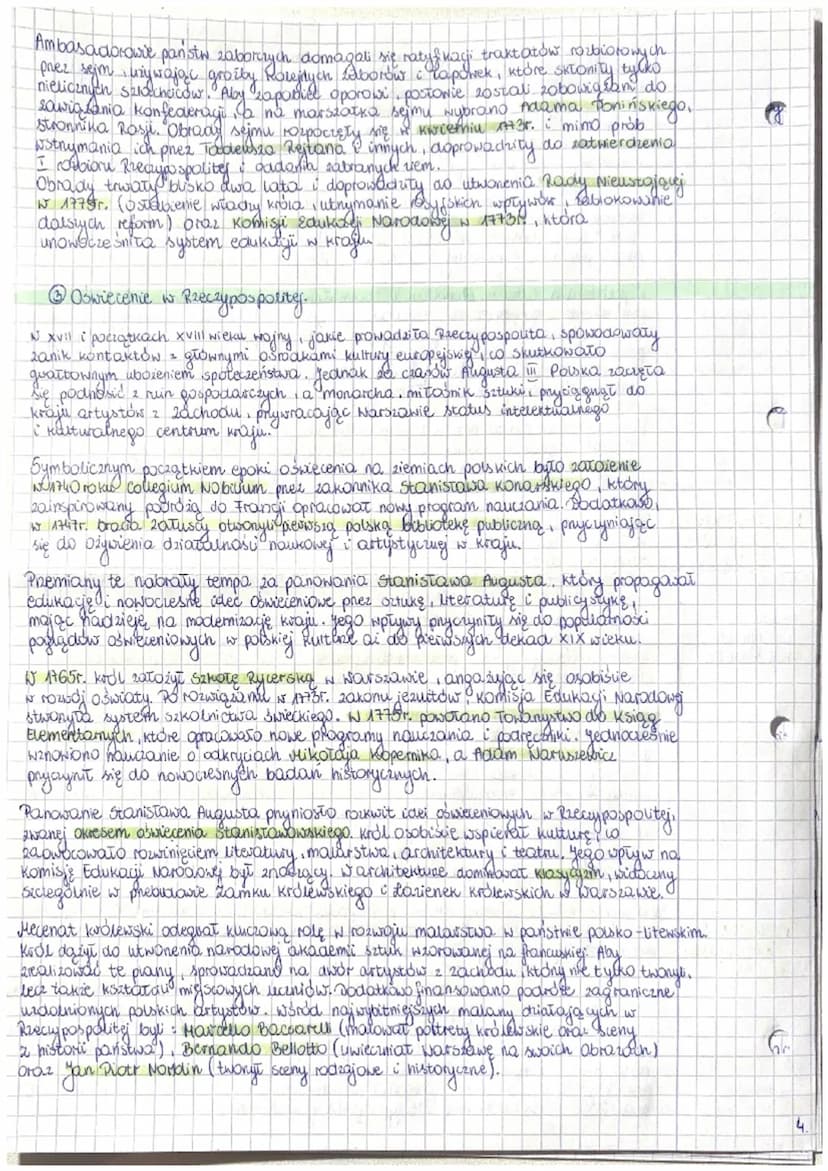 Ambasadorowie państw zaborczych domagali się ratyfikacji traktatów rozbiorowych
przez sejm, używając groźby kolejnych zaborów i łapówek, które skłoniły tylko
nielicznych szlachciców. Aby zapobiec oporowi, posłowie zostali zobowiązani do
zawiązania konfederacji, a na marszałka sejmu wybrano Adama Ponińskiego,
stronnika Rosji. Obrady sejmu rozpoczęły się w kwietniu 1773r. i mimo prób
wstrzymania ich przez Tadeusza Rejtana i innych, doprowadziły do zatwierdzenia
I rozbioru Rzeczypospolitej i oddania zabranych ziem.
Obrady trwały blisko dwa lata i doprowadziły do utworzenia Rady Nieustającej
w 1775r. (osłabienie władzy króla, utrzymanie rosyjskich wpływów, zablokowanie
dalszych reform) oraz Komisji Edukacji Narodowej w 1773r., która
unowocześniła system edukacji w kraju.
③ Oświecenie w Rzeczypospolitej.
W XVII i początkach XVIII wieku wojny, jakie prowadziła Rzeczypospolita, spowodowały
zanik kontaktów z głównymi ośrodkami kultury europejskiej, co skutkowało
gwałtownym ubożeniem społeczeństwa. Jednak za czasów Augusta III Polska zaczęła
się podnosić z ruin gospodarczych, a monarcha, miłośnik sztuki, przyciągnął do
kraju artystów z zachodu, przywracając Warszawie status intelektualnego
i kulturalnego centrum kraju.
Symbolicznym początkiem epoki oświecenia na ziemiach polskich było założenie
w 1740 roku Collegium Nobilium przez zakonnika Stanisława Konarskiego, który
zainspirowany podróżą do Francji opracował nowy program nauczania. Dodatkowo,
w 1747r. bracia Załuscy otworzyli pierwszą polską bibliotekę publiczną, przyczyniając
się do ożywienia działalności naukowej i artystycznej w kraju.
Przemiany te nabrały tempa za panowania Stanisława Augusta, który propagował
edukację i nowoczesne idee oświeceniowe przez sztukę, literaturę i publicystykę,
mając nadzieję na modernizację kraju. Jego wpływy przyczyniły się do popularności
poglądów oświeceniowych w polskiej kulturze aż do pierwszych dekad XIX wieku.
W 1765r. król założył Szkołę Rycerską w Warszawie, angażując się osobiście
w rozwój oświaty. Po rozwiązaniu w 1773r. zakonu jezuitów, Komisja Edukacji Narodowej
stworzyła system szkolnictwa świeckiego. W 1775r. powołano Towarzystwo do Ksiąg
Elementarnych, które opracowało nowe programy nauczania i podręczniki. Jednocześnie
wznowiono nauczanie o odkryciach Mikołaja Kopernika, a Adam Naruszewicz
przyczynił się do nowoczesnych badań historycznych.
Panowanie Stanisława Augusta przyniosło rozkwit idei oświeceniowych w Rzeczypospolitej,
zwanej okresem oświecenia Stanisławowskiego. Król osobiście wspierał kulturę, co
zaowocowało rozwinięciem literatury, malarstwa, architektury i teatru. Jego wpływ na
Komisję Edukacji Narodowej był znaczący. W architekturze dominował klasycyzm, widoczny
szczególnie w przebudowie Zamku Królewskiego i Łazienek Królewskich w Warszawie.
Mecenat królewski odegrał kluczową rolę w rozwoju malarstwa w państwie polsko-litewskim.
Król dążył do utworzenia narodowej akademii sztuk wzorowanej na francuskiej. Aby
zrealizować te plany, sprowadzano na dwór artystów z zachodu, którzy nie tylko tworzyli,
lecz także kształcili miejscowych uczniów. Dodatkowo finansowano podróże zagraniczne
uzdolnionych polskich artystów. Wśród najwybitniejszych malarzy działających w
Rzeczypospolitej byli: Marcello Bacciarelli (malował portrety królewskie oraz sceny
z historii państwa), Bernardo Bellotto (uwieczniał Warszawę na swoich obrazach)
oraz Jan Piotr Norblin (tworzył sceny rodzajowe i historyczne).
4.